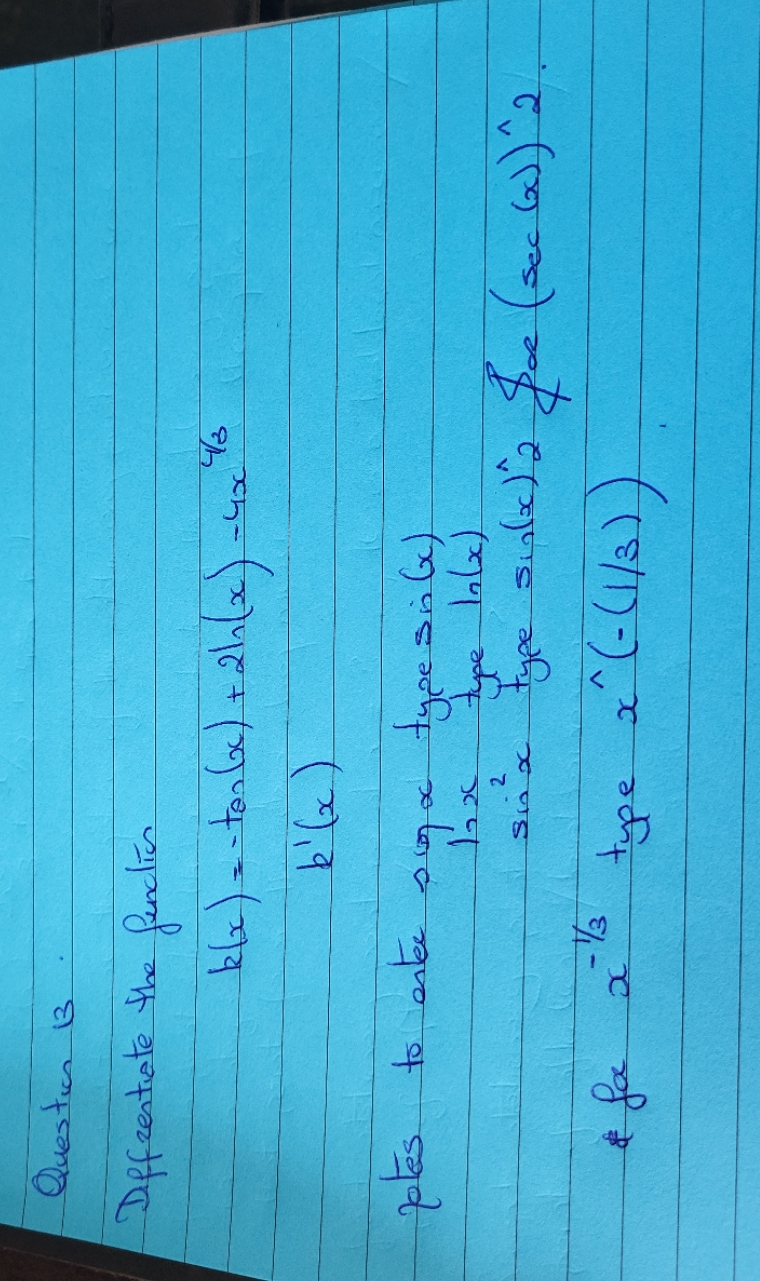 Question 13.
Differentiate the function
k(x) = -tan(x) + 2ln(x) - 4x^4/3
k'(x)
notes to enter sin x type sin(x)
ln x type ln(x)
sin² x type sin(x)^2 for (sec(x))^2.
for x^-1/3 type x^(-(1/3))